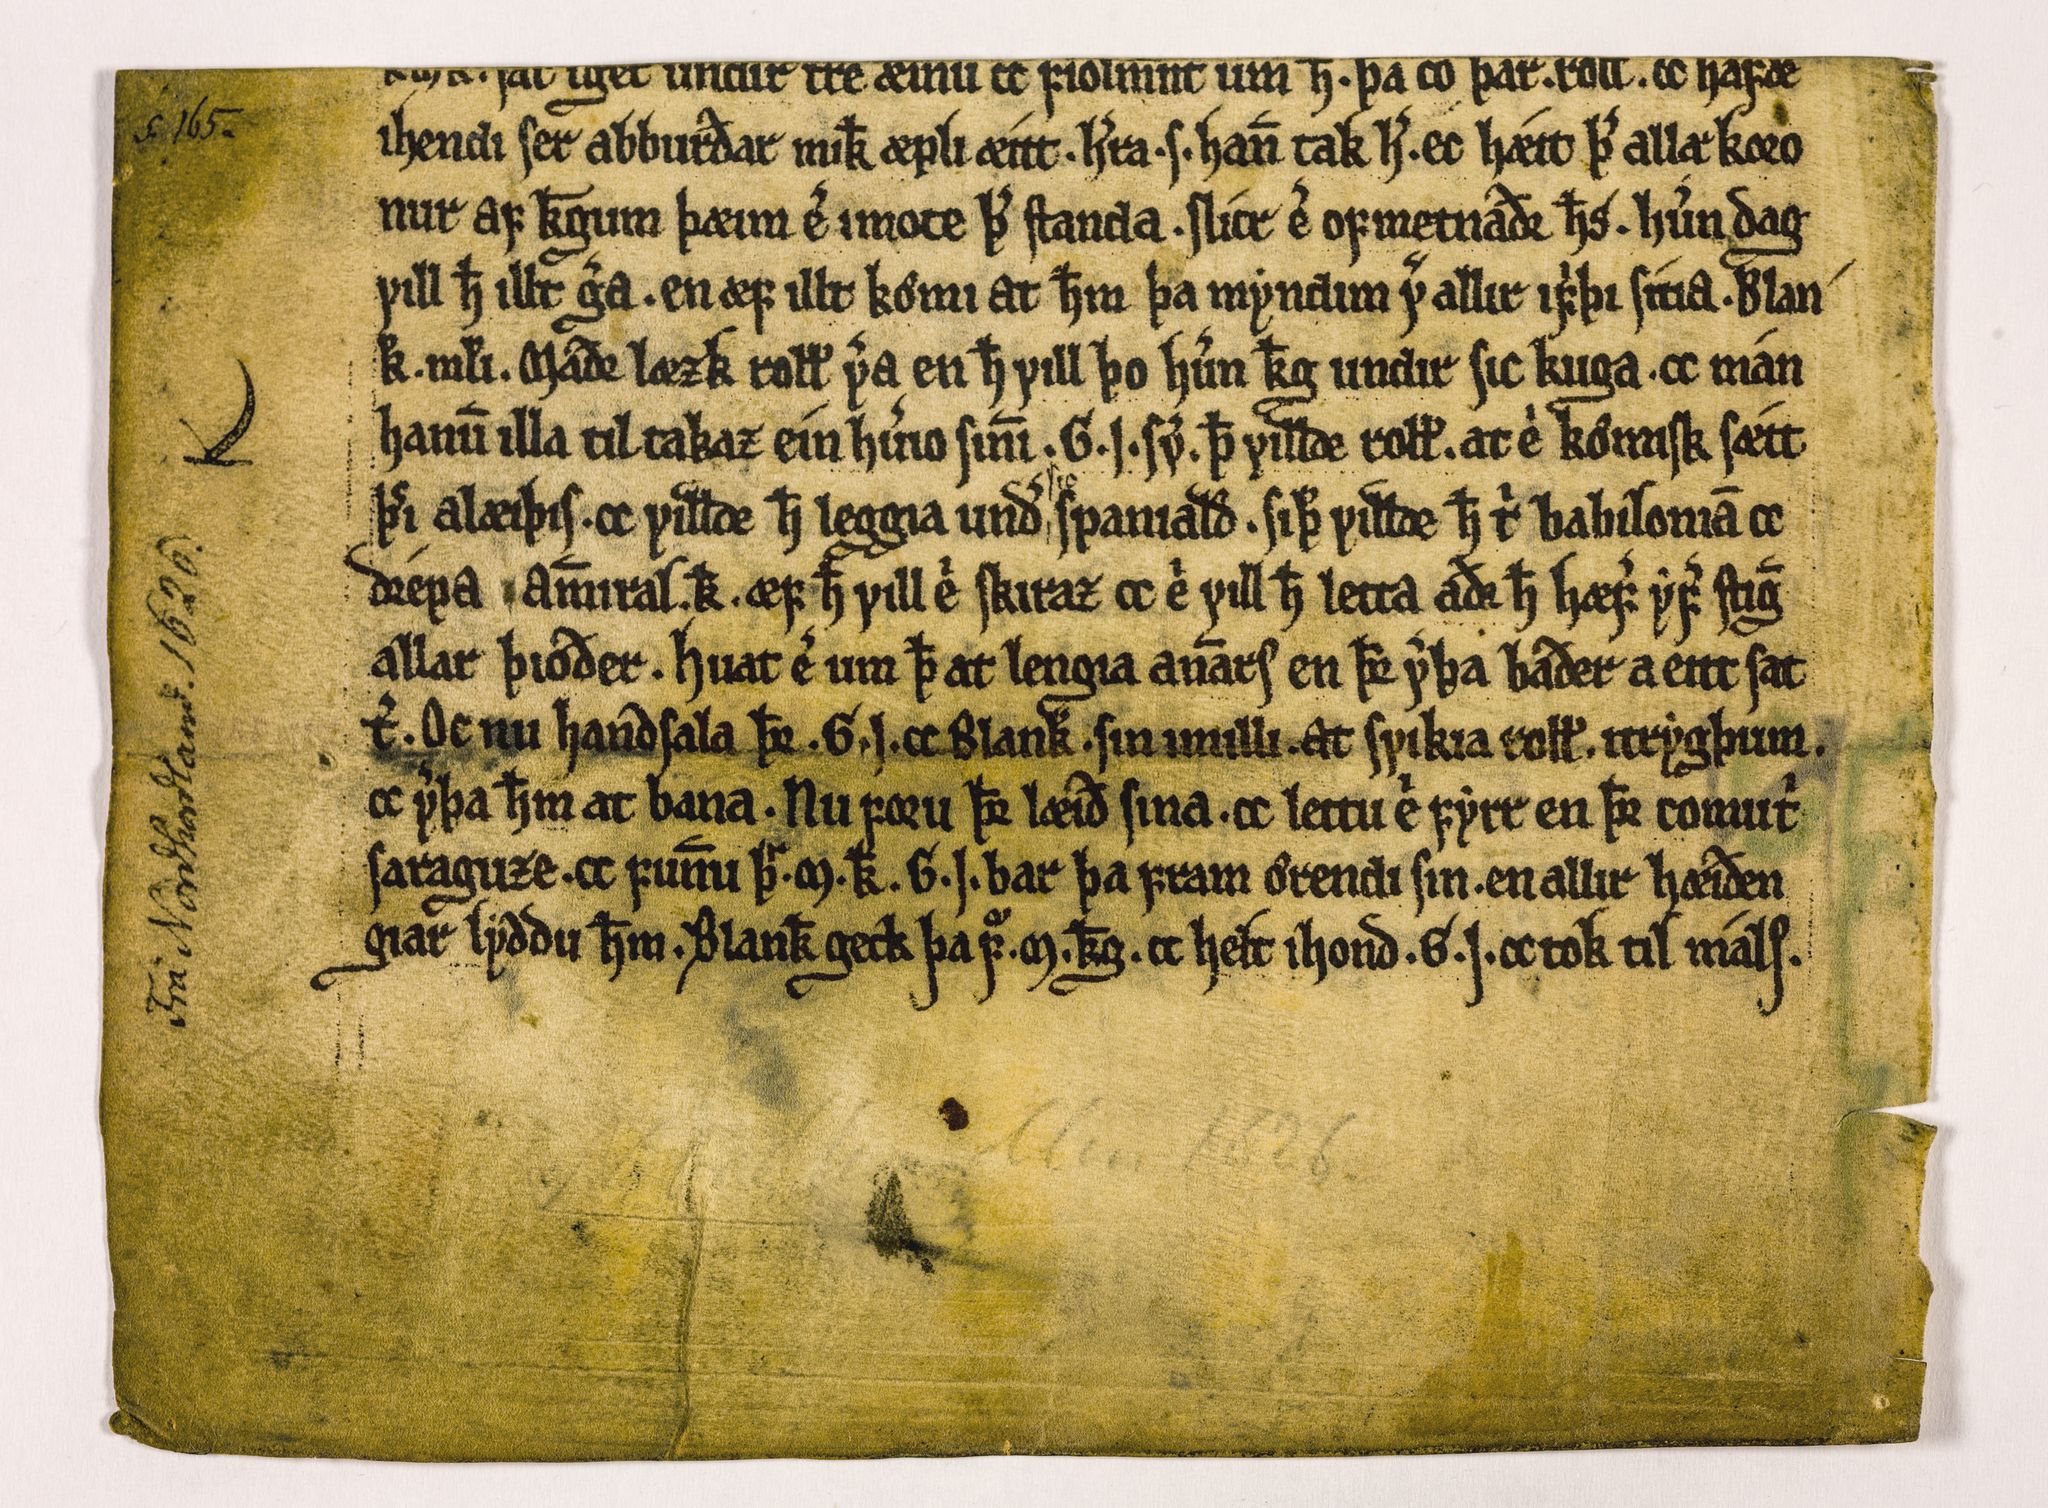 sat iget undir tre æinu ꝛ ꝼiolmnt um h̄. þa co þar. roll. ꝛ haꝼde
ihendi ser abburðar mik̄ æpli æitt. h̓ra. s. han̄ tak h̓. ec hæit þ̓ allar koro
nur aꝼ k̄gum þæim e̓ imote þ̓ standa. slict e̓ oꝼmetnaðe h̄s. hu̓n dag
vill h̄ illt g̓a. en æꝼ illt kømi at h̄m þa myndim v̓ allir iꝼ̓þi sitia. Blan
k̄. mł̄i. Maðe læzk roll̄ v̓a en h̄ vill þo hu̓n k̄g undir sic kuga. ꝛ man
hanū illa til takaz ein hu̓io sinn̄i. G. J. sv̓. þ̄ villde roll̄. at e̓ kømisk sætt
þ̓i alæiþis. ꝛ villde h̄ leggia und̓ sic spanialð. siþ̄ villde h̄ t̓ babiloniā ꝛ
drepa am̄iral. k̄. æꝼ h̄ vill e̓ skiraz ꝛ e̓ vill h̄ letta aðr h̄ hæꝼ̓ yꝼ̓ stiḡ
allar þioðer. huat e̓ um þ̄ at lengia an̄ars en þr̄ v̓þa baðer a eitt sat
t̓. Oc nu handsala þr̄. G. J. ꝛ Blank̄. sin imilli. At svikia roll̄. itrygþum.
ꝛ v̓þa h̄m at bana. Nu ꝼoru þr̄ læið sina. ꝛ lettu e̓ ꝼyrr en þr̄ comu t̓
saraguze. ꝛ ꝼun̄u þ̓. M. k̄. G. J. bar þa ꝼram ørendi sin. en allir hæiðen
giar lyddu h̄m. Blank̄ geck þa ꝼ̊. M. k̄g. ꝛ helt ihond. G. J. ꝛ tok til mals.
f. 165.
K
Fra Nordhordland. 1626.
1626